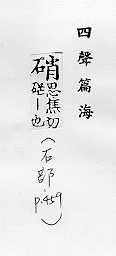 四聲篇海
硝
思焦切
硭丨也
(石部.
p.459)